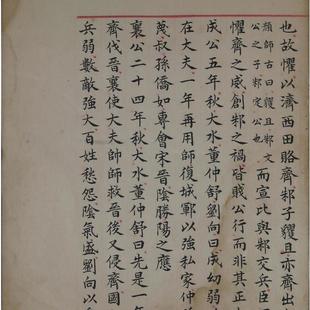 也故懼以濟西田賂齊邾子貜且亦齊出
顔師古曰貜且邾文
公之子邾定公也
而宣比與邾交兵臣
懼齊之威創邾之禍皆賤公行而非其正
成公五年秋大水董仲舒劉向曰成幼弱
在大夫一年再用師復城鄆以強私家仲
蔑叔孫僑如專會宋晉陰勝陽之應
襄公二十四年秋大水董仲舒曰先是一年
齊伐晉襄使大夫帥師救晉後又侵齊國
兵弱數敵強大百姓愁怨陰氣盛劉向以